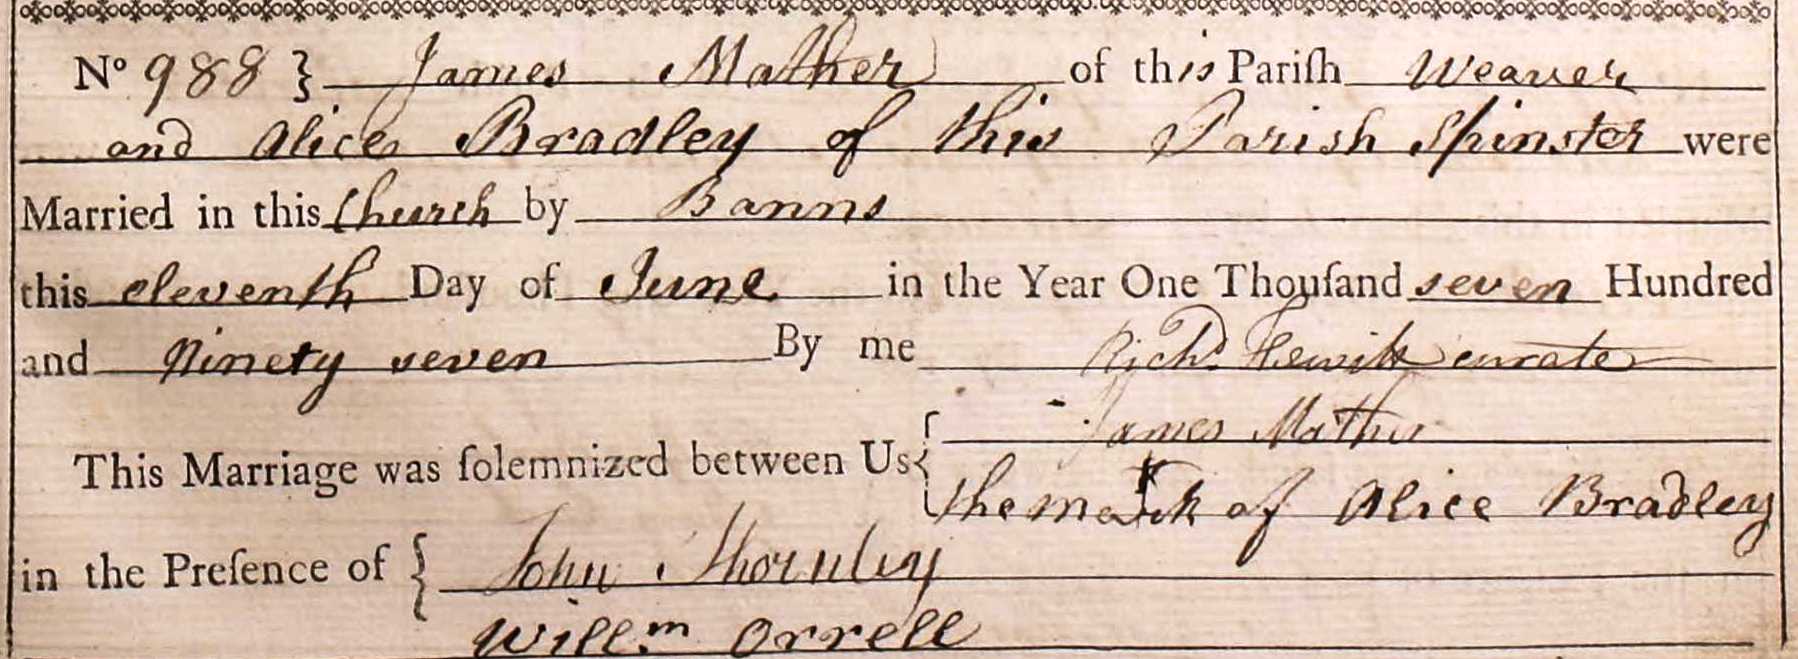 Nº 988 } James Mather of this Pariſh Weaver
and Alice Bradley of this Parish Spinster were
Married in this Church by Banns
this eleventh Day of June in the Year One Thouſand seven Hundred
and Ninety seven By me Richd. Hewitt curate
James Mather
This Marriage was ſolemnized between Us {
the mark of Alice Bradley
in the Preſence of { John Thornley
Willm. Orrell